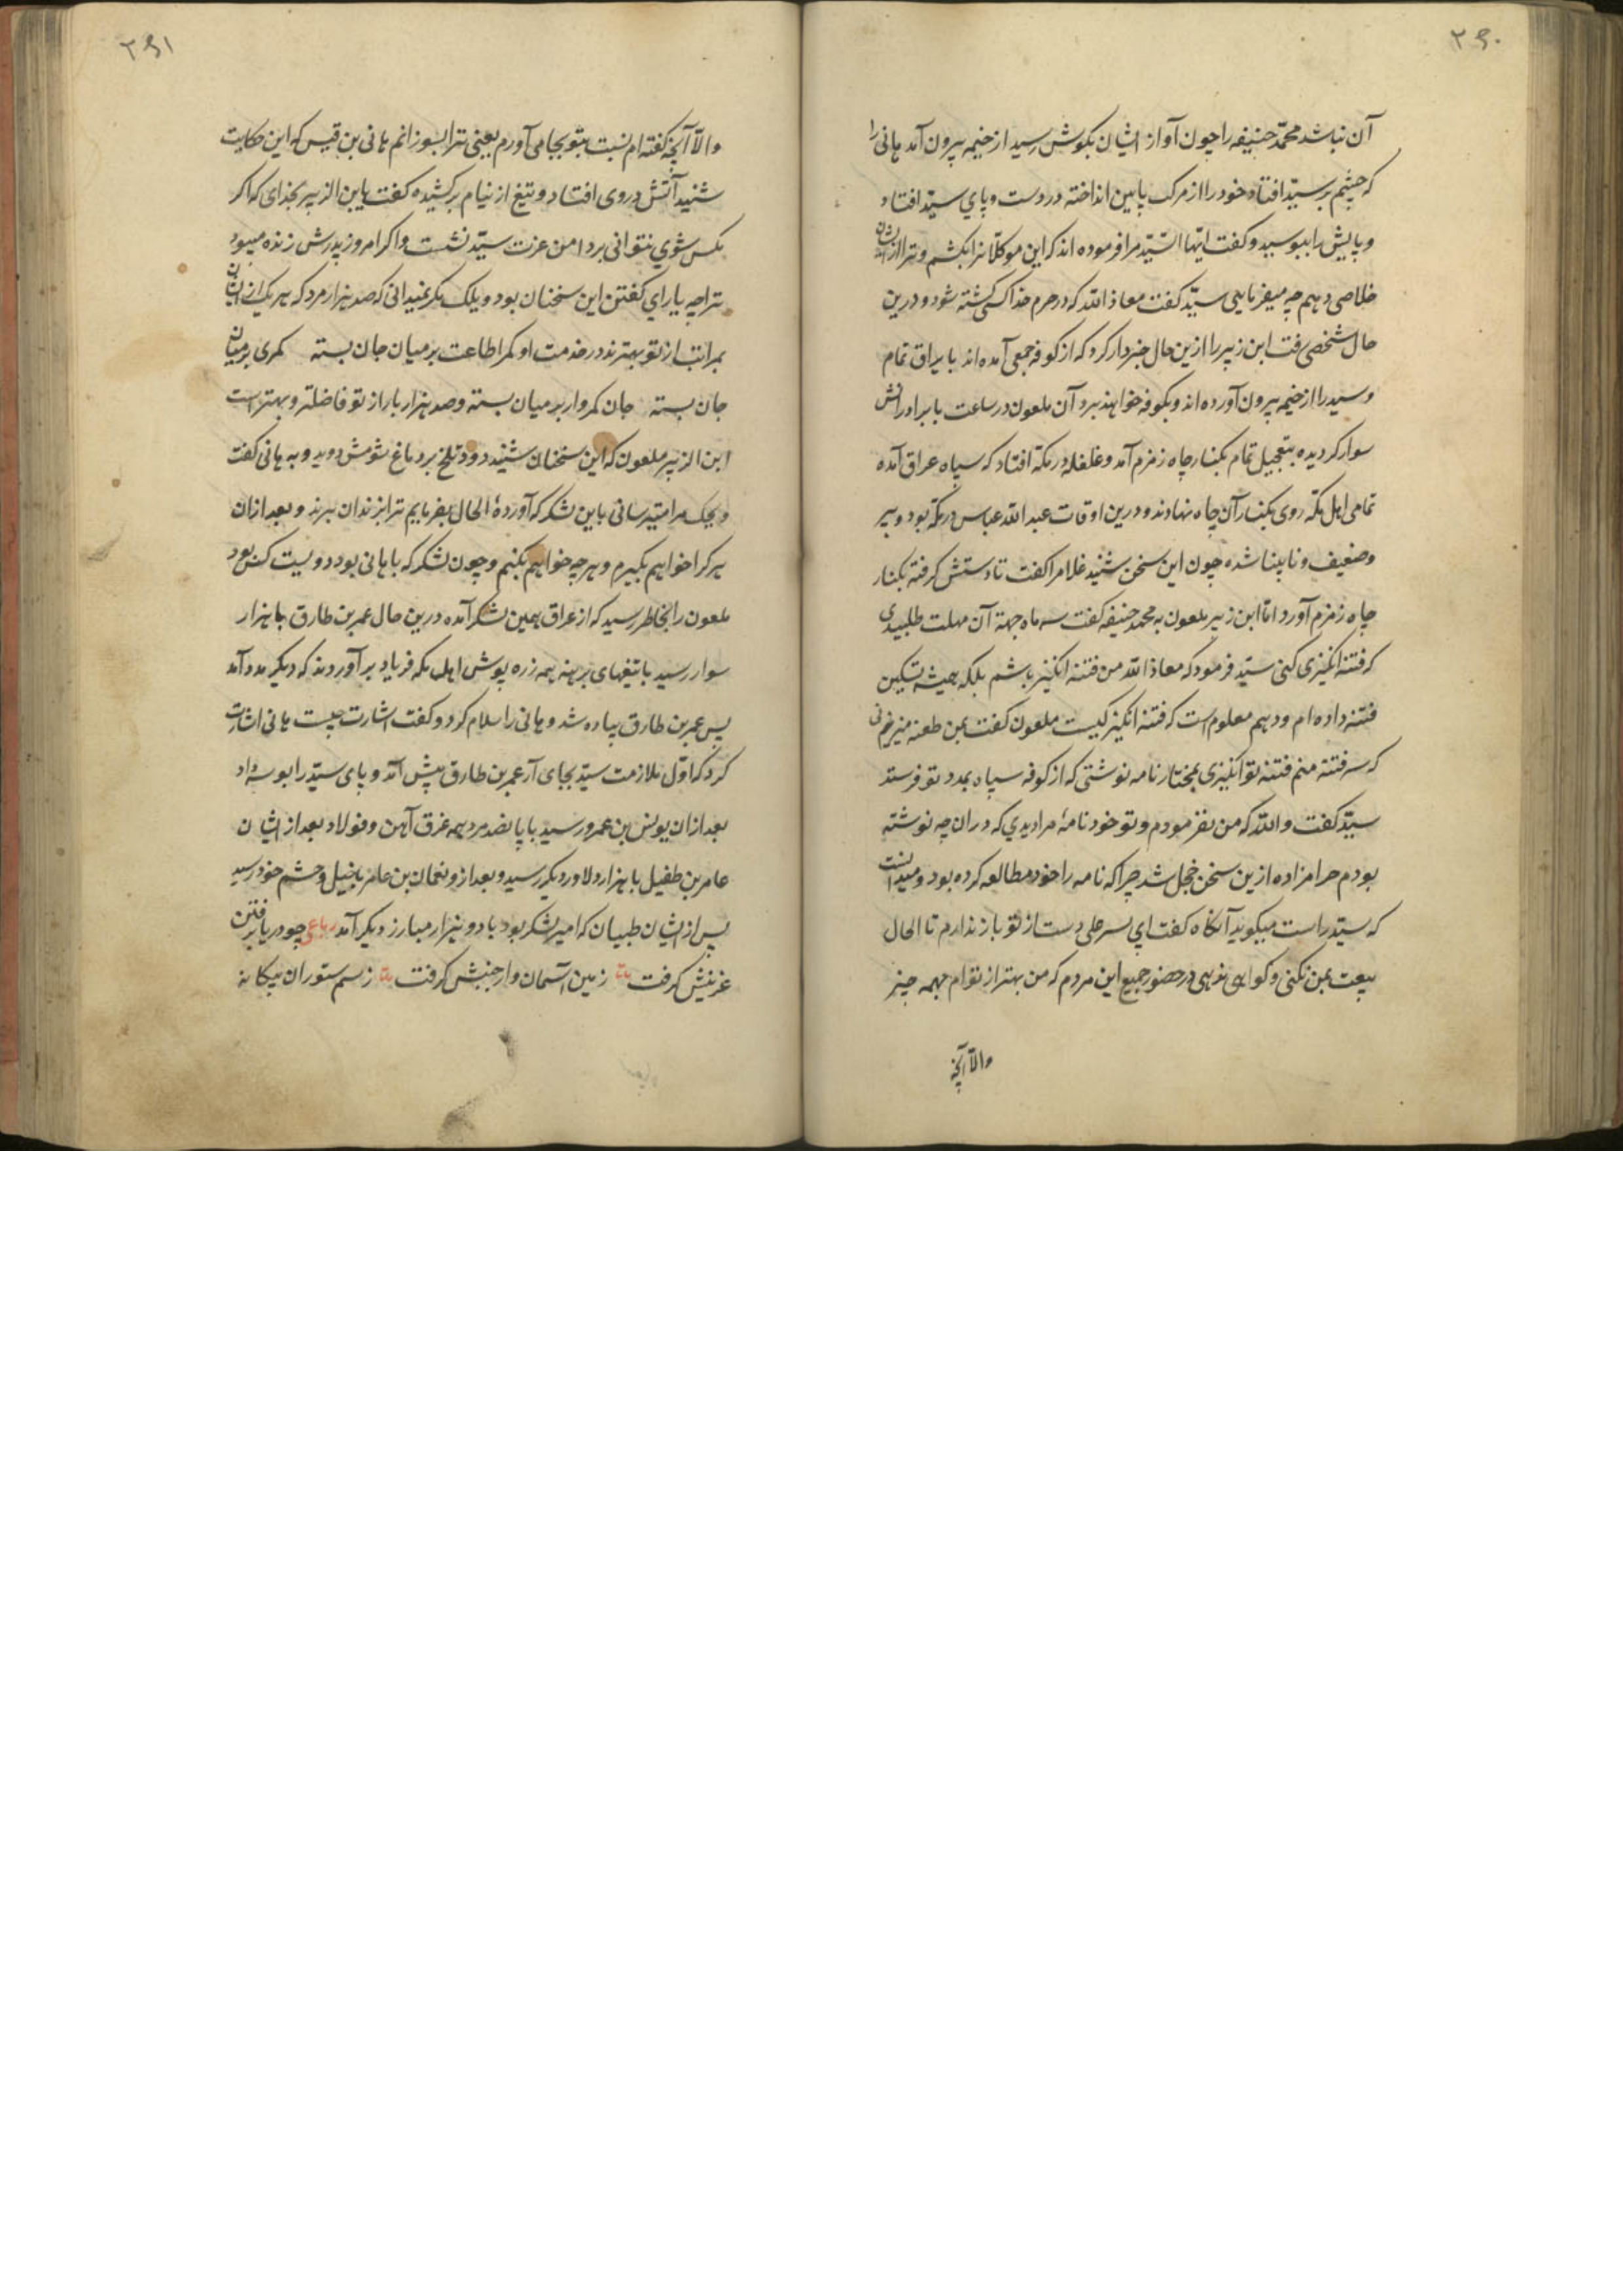 ۲۶۰
آن نباشد محمد حنیفه را چون آواز ایشان بگوش رسید از خیمه بیرون آمد هانی را
که چشم بر سید افتاد خود را از مرکب پایین انداخته در دست و پای سید افتاد
و پایش را ببوسید و گفت ایها السید مرا فرموده اند که این موکلانرا بکشم و ترا از ایشان
خلاصی دهم چه میفرمایی سید گفت معاذ الله که در حرم خدا کسی کشته شود و درین
حال شخصی رفت ابن زبیر را ازین حال خبردار کرد که از کوفه جمعی آمده اند با یراق تمام
و سید را از خیمه بیرون آورده اند و بکوفه خواهند برد آن ملعون در ساعت با برادرانش
سوار گردیده بتعجیل تمام بکنار چاه زمزم آمد و غلغله در مکه افتاد که سپاه عراق آمده
تمامی اهل مکه روی بکنار آن چاه نهادند و درین اوقات عبد الله عباس در مکه بود و پیر
و ضعیف و نابینا شده چون این سخن شنید غلامرا گفت تا دستش گرفته بکنار
چاه زمزم آورد اما ابن زبیر ملعون به محمد حنیفه گفت سه ماه جهة آن مهلت طلبیدی
که فتنه انگیزی کنی سید فرمود که معاذ الله من فتنه انگیز باشم بلکه همیشه تسکین
فتنه داده ام و دهم معلوم است که فتنه انگیز کیست ملعون گفت بمن طعنه میزنی
که سر فتنه منم فتنه تو انگیزی بمختار نامه نوشتی که از کوفه سپاه بمدد تو فرستد
سید گفت و الله که من نفرمودم و تو خود نامهٔ مرا دیدی که در ان چه نوشته
بودم حرامزاده ازین سخن خجل شد چرا که نامه را خود مطالعه کرده بود و میدانست
که سید راست میگوید آنگاه گفت ای پسر علی دست از تو باز ندارم تا الحال
بیعت بمن نکنی و گواهی ندهی در حضور جمیع این مردم که من بهتر از توام بهمه چیز
والا آنچه
۲۶۱
والا آنچه گفته ام نسبت بتو بجا می آورم یعنی ترا بسوزانم هانی بن قیس که این حکایت
شنید آتش در وی افتاد و تیغ از نیام برکشیده گفت یا بن الزبیر بخدای که اگر
مکس شوی نتوانی بر دامن عزت سید نشست و اگر امروز پدرش زنده میبود
ترا چه یارای گفتن این سخنان بود ویلک مگر نمیدانی که صد هزار مرد که هر یک از ایشان
بمراتب از تو بهترند در خدمت او کمر اطاعت بر میان جان بسته کمری بر میان
جان بسته جان کمروار بر میان بسته و صد هزار بار از تو فاضلتر و بهتر است
ابن الزبیر ملعون که این سخنان شنید دود تلخ بر دماغ شومش دوید و به هانی گفت
ویحک مرا میترسانی باین لشکر که آوردهٔ الحال بفرمایم ترا بزندان برند و بعد از ان
هر کرا خواهیم بگیرم و هر چه خواهیم بکنم و چون لشکر که با هانی بود دویست کس بود
ملعون را بخاطر رسید که از عراق همین لشکر آمده درین حال عمر بن طارق با هزار
سوار رسید با تیغهای برهنه همه زره پوش اهل مکه فریاد برآوردند که دیگر مدد آمد
پس عمر بن طارق پیاده شد و هانی را سلام کرد و گفت اشارت چیست هانی اشارت
کرد که اول ملازمت سید بجای آر عمر بن طارق پیش آمد و پای سید را بوسه داد
بعد از ان یونس بن عمرو رسید با پانصد مرد همه غرق آهن و فولاد بعد از ایشان
عامر بن طفیل با هزار دلاور دیگر رسید و بعد از و نعمان بن عامر با خیل و حشم خود رسید
پس از ایشان طبیان که امیر لشکر بود با دو هزار مبارز دیگر آمد رباعی چو دریا برفتن
غرنبش گرفت بیت زمین آسمان وار جنبش گرفت بیت ز سم ستوران بیگانه